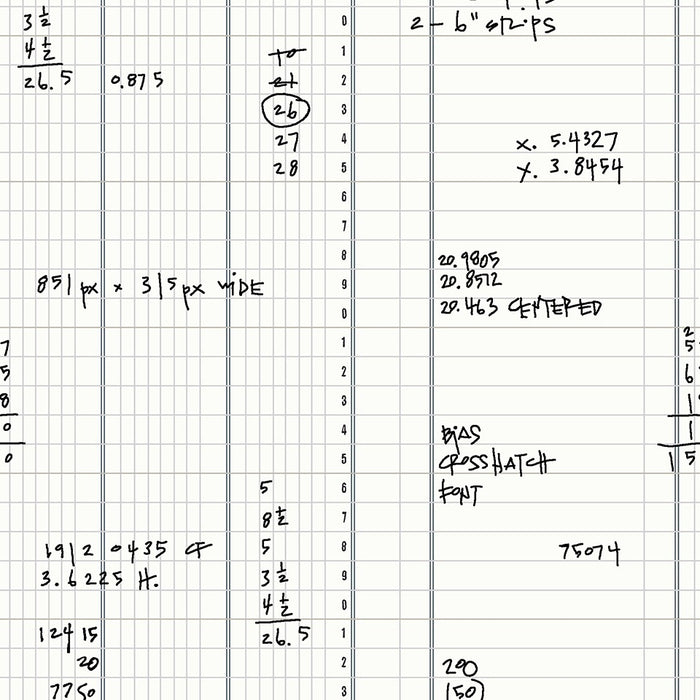 2 – 6" strips
3 1/2
4 1/2
26.5 0.875
10
21
26
27
28
x. 5.4327
y. 3.8454
851 px x 315 px WIDE
20.9805
20.8512
20.463 CENTERED
BIAS
CROSSHATCH
FONT
5
8 1/2
5
3 1/2
4 1/2
26.5
75074
1912 0435
3.6225 H.
12415
20
7750
200
150
0
1
2
3
4
5
6
7
8
9
0
1
2
3
4
5
6
7
8
9
0
1
2
3
7
5
8
0
0
2
5
6
1
1
15